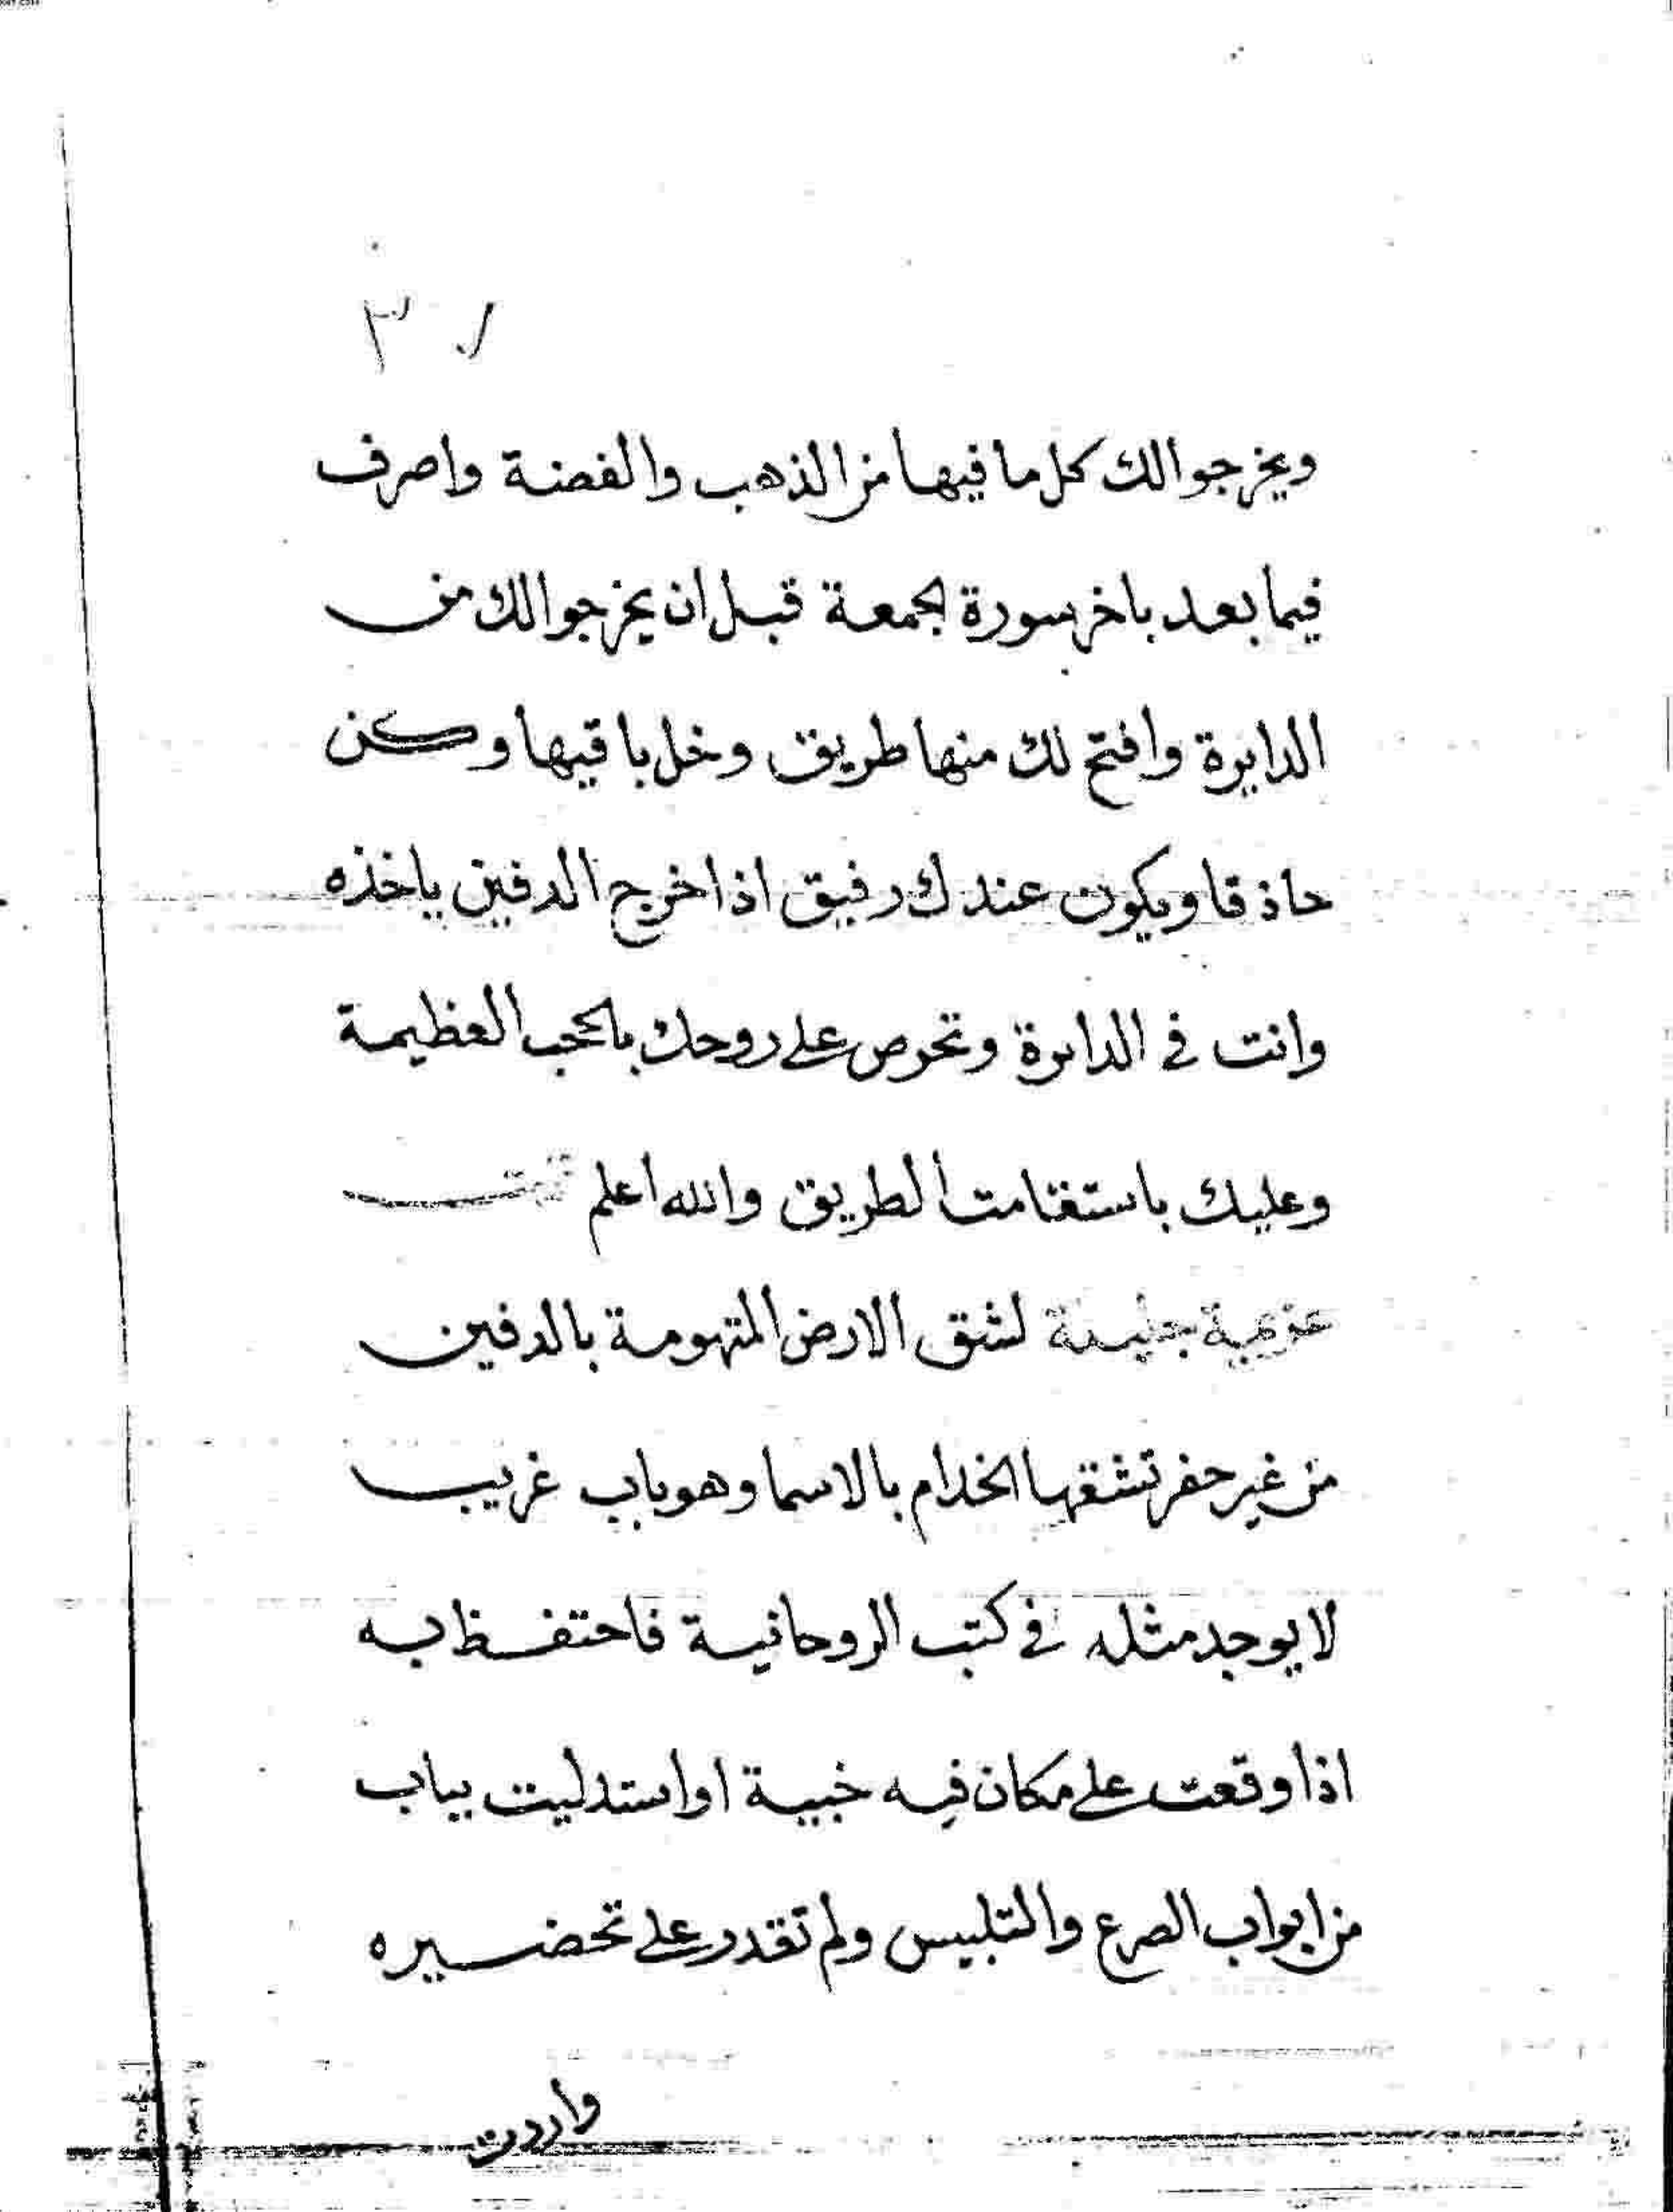 ٣
ويخرجوا لك كل ما فيها من الذهب والفضة واصرف
فيما بعد باخر سورة الجمعة قبل ان يخرجوا لك من
الدايرة وافتح لك منها طريق وخل باقيها وكن
حاذقا ويكون عندك رفيق اذا خرج الدفين ياخذه
وانت فى الدايرة وتحرص على روحك بالحجب العظيمة
وعليك باستقامت الطريق والله اعلم تمت
عزيمة جليلة لشق الارض المتهومة بالدفين
من غير حفر تشقها الخدام بالاسما وهو باب غريب
لا يوجد مثله فى كتب الروحانية فاحتفظ به
اذا وقعت على مكان فيه خبية او استدليت بباب
من ابواب الصرع والتلبيس ولم تقدر على تحضيره
واردت